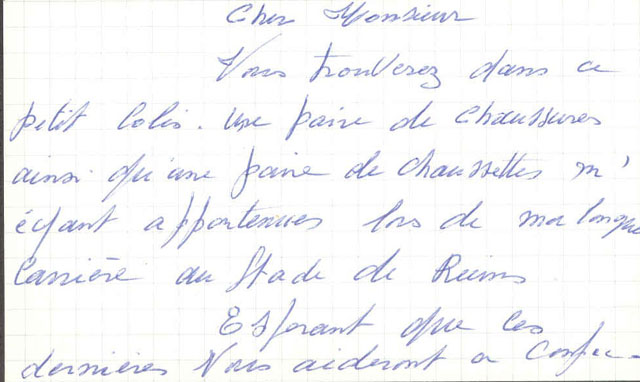 Cher Monsieur
Vous trouverez dans ce
petit Colis. une paire de Chaussures
ainsi qu'une paire de chaussettes m'
éyant appartenues lors de ma longue
Carrière au Stade de Reims
Esperant que ces
dernières Vous aideront a Confec-